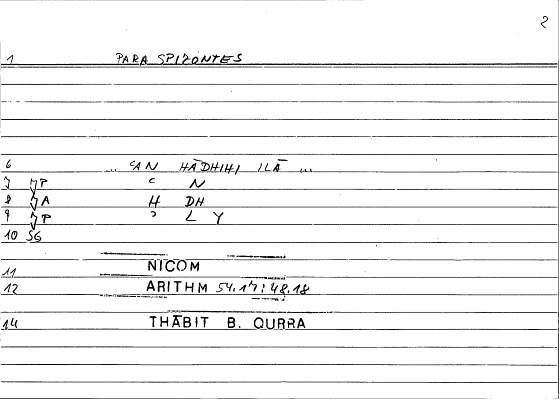 2
1 PARA SPIZONTES
6 ... ʿAN HĀDHIHI ILĀ ...
7 P ʿ N
8 A H DH
9 P ʾ L Y
10 SG
11 NICOM
12 ARITHM 54.17; 48.18
14 THĀBIT B. QURRA